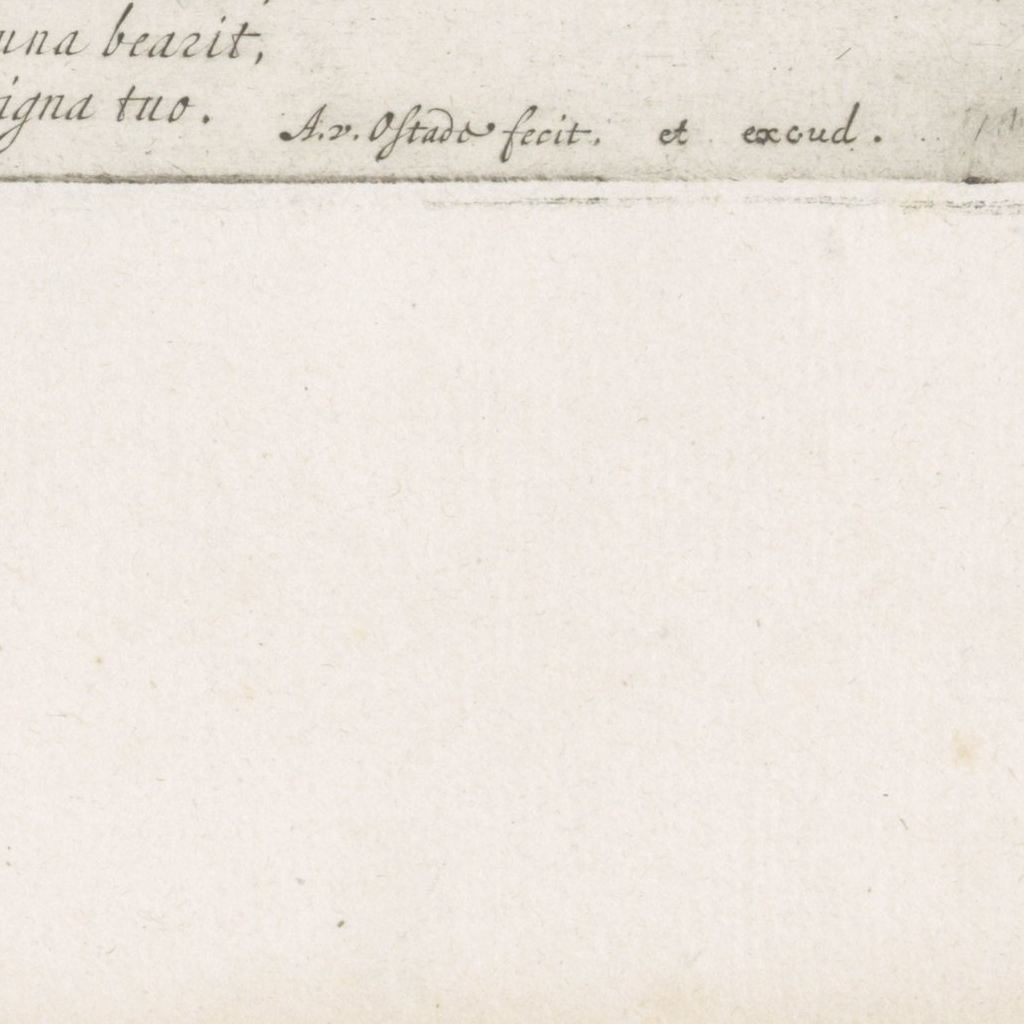 una bearit,
igna tuo.
A.v. Oſtade fecit. et excud.